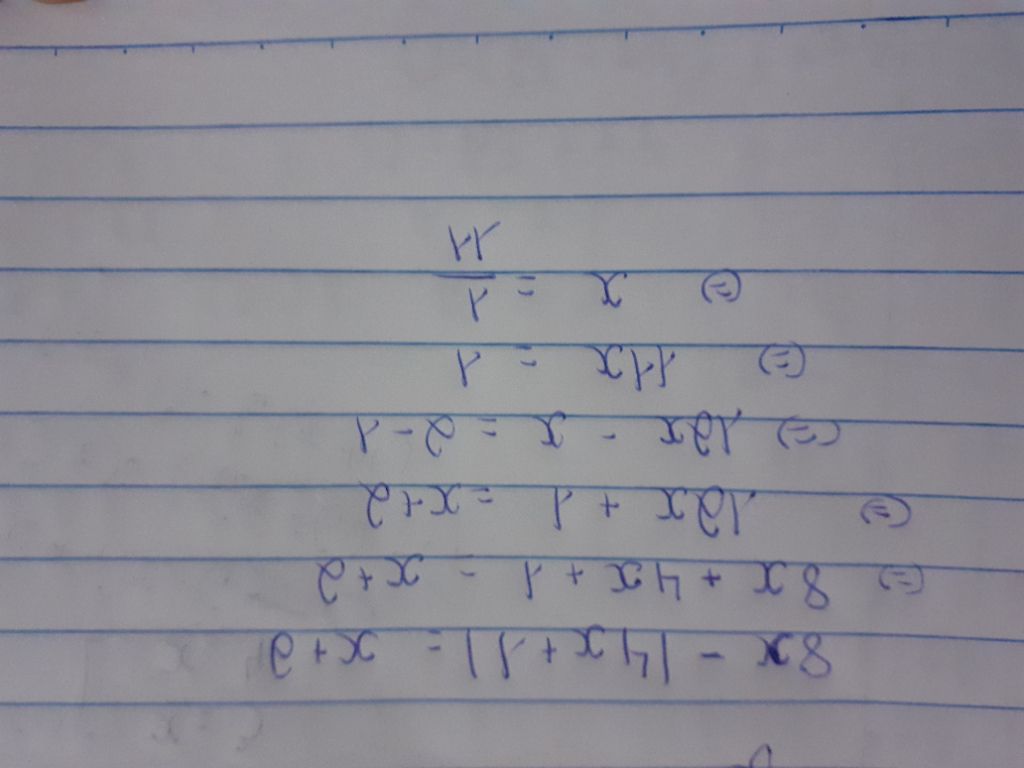 8x - |4x+1| = x+2
(=) 8x + 4x + 1 = x+2
(=) 12x + 1 = x+2
(=) 12x - x = 2-1
(=) 11x = 1
(=) x = 1/11